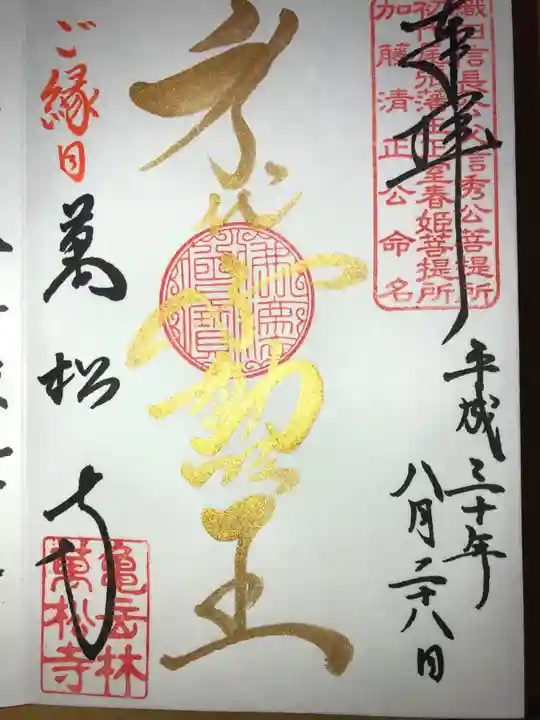 奉拝
織田信長公父信秀公菩提所
初代尾張藩主正室春姫菩提所
加藤清正公命名
平成三十年
八月二十八日
身代
不動王
ご縁日
萬松寺
亀岳林
萬松寺